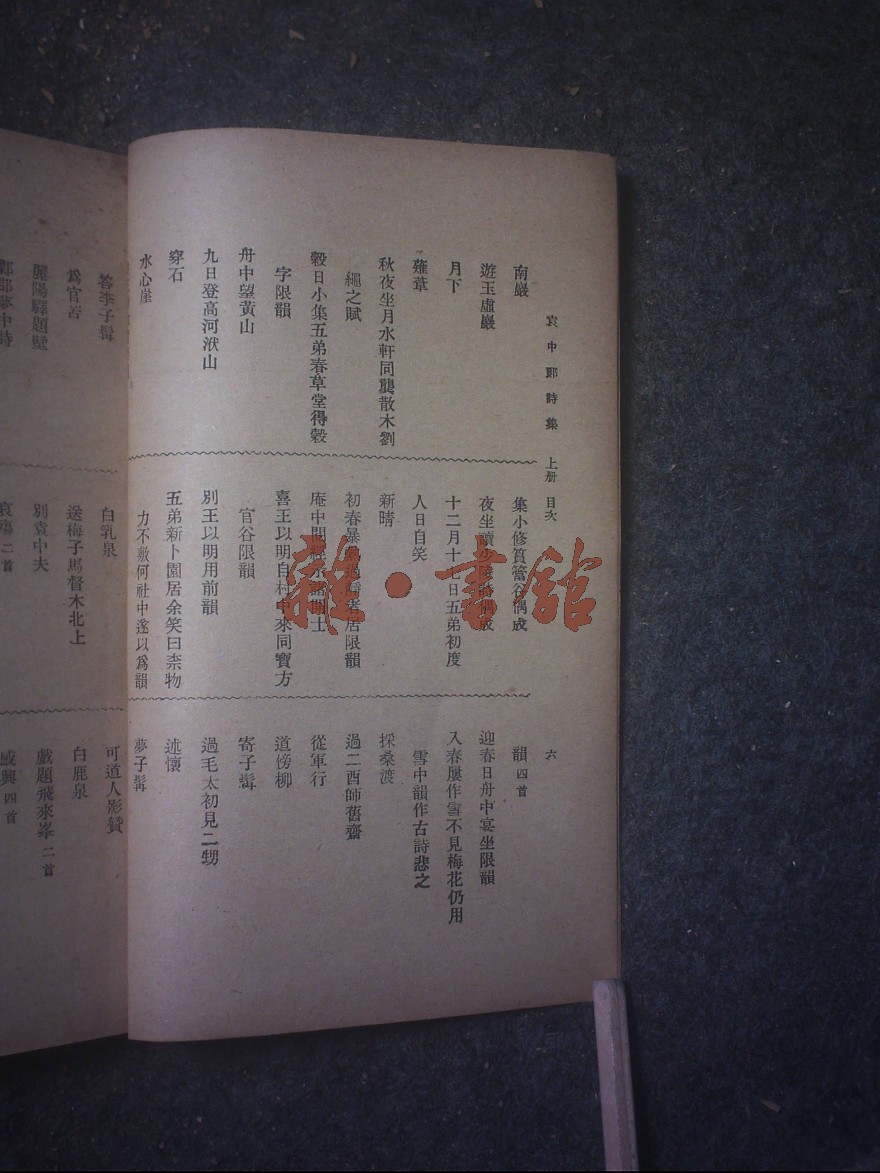 袁中郎詩集 上册 目次 六
南巖
遊玉虛巖
月下
薙草
秋夜坐月水軒同龔散木劉
繩之賦
穀日小集五弟春草堂得穀
字限韻
舟中望黃山
九日登高河洑山
穿石
水心崖
集小修篔簹谷偶成
夜坐讀少陵詩偶成
十二月十七日五弟初度
人日自笑
新晴
初春暴風
者居限韻
庵中閱經示諸開士
喜王以明自村中來同寶方
官谷限韻
別王以明用前韻
五弟新卜園居余笑曰柰物
力不敷何社中遂以爲韻
韻 四首
迎春日舟中宴坐限韻
入春屢作雪不見梅花仍用
雪中韻作古詩悲之
採桑渡
過二酉師舊齋
從軍行
道傍柳
寄子髯
過毛太初見二甥
述懷
夢子髯
答李子髯
爲官苦
麗陽驛題壁
邯鄲夢中詩
白乳泉
送梅子馬督木北上
別袁中夫
哀殤 二首
可道人影贊
白鹿泉
戲題飛來峯 二首
感興 四首
雜·書館